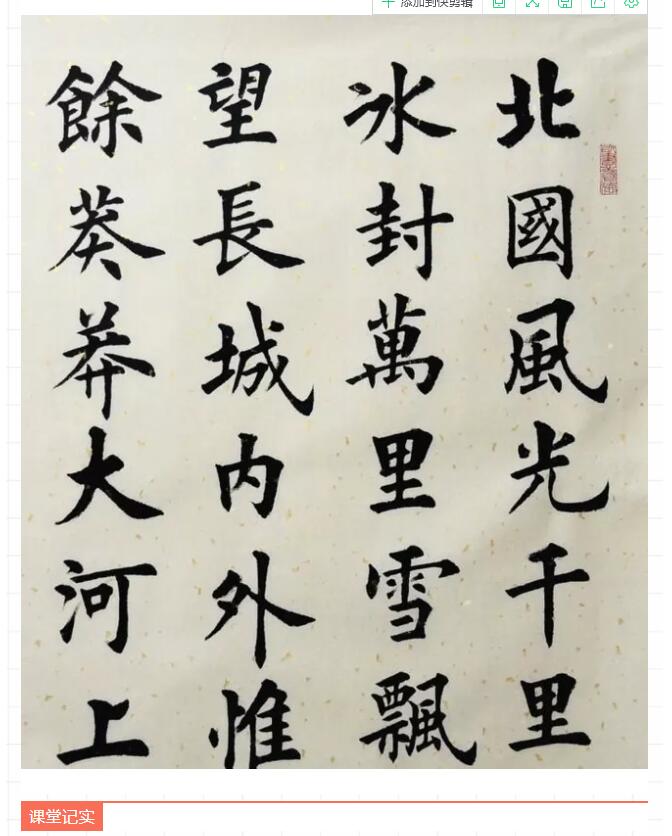 添加到快剪辑
北國風光千里
冰封萬里雪飄
望長城内外惟
餘莽莽大河上
课堂记实